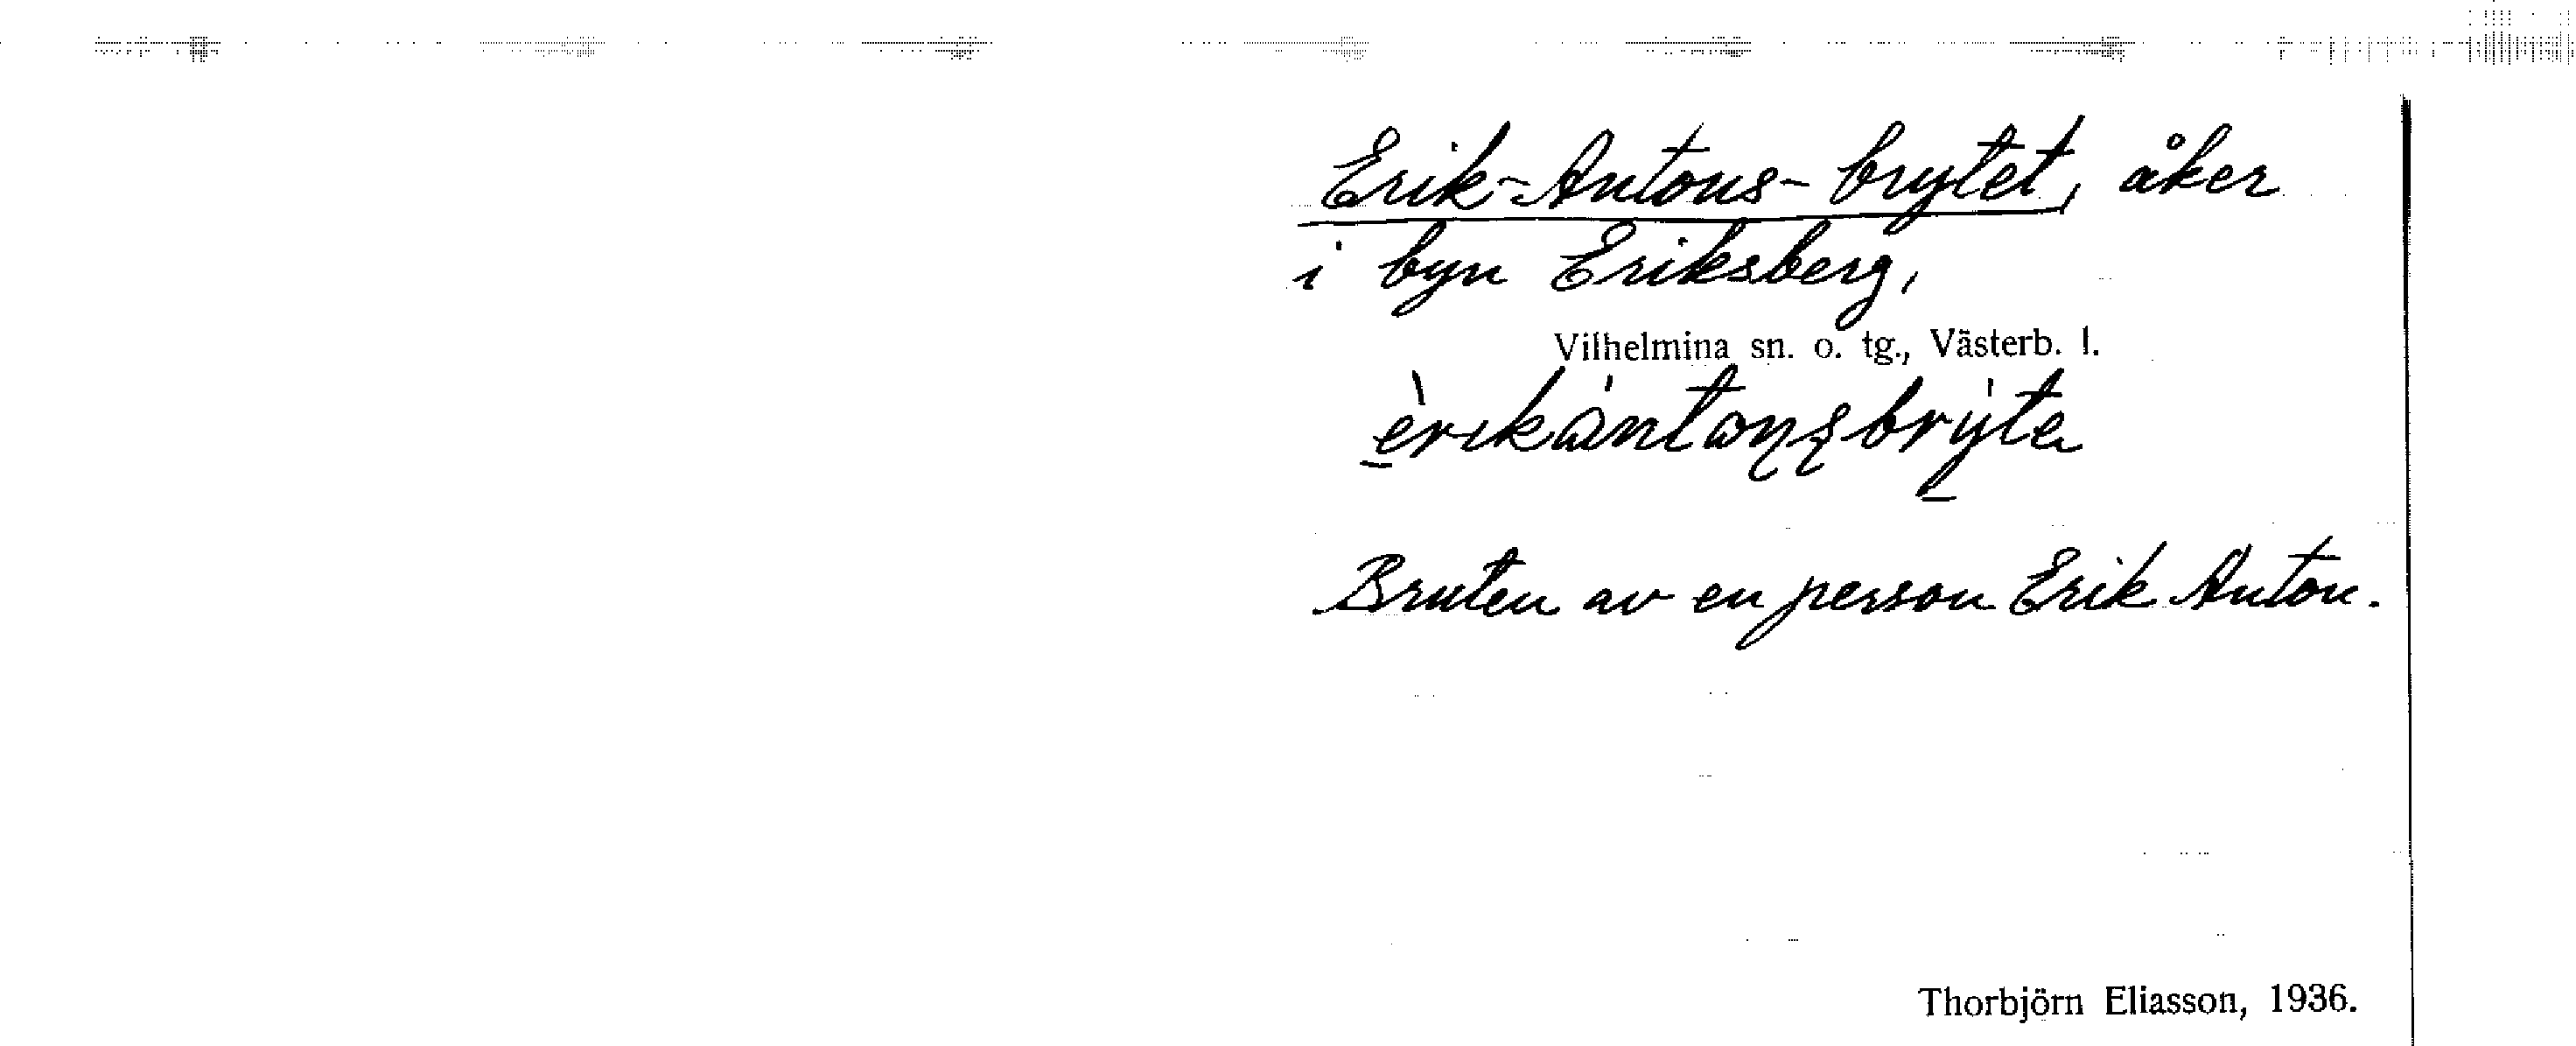 Erik-Antons-brytet, åker
i byn Eriksberg,
Vilhelmina sn. o. tg., Västerb. l.
Bruten av en person Erik Anton.
Thorbjörn Eliasson, 1936.